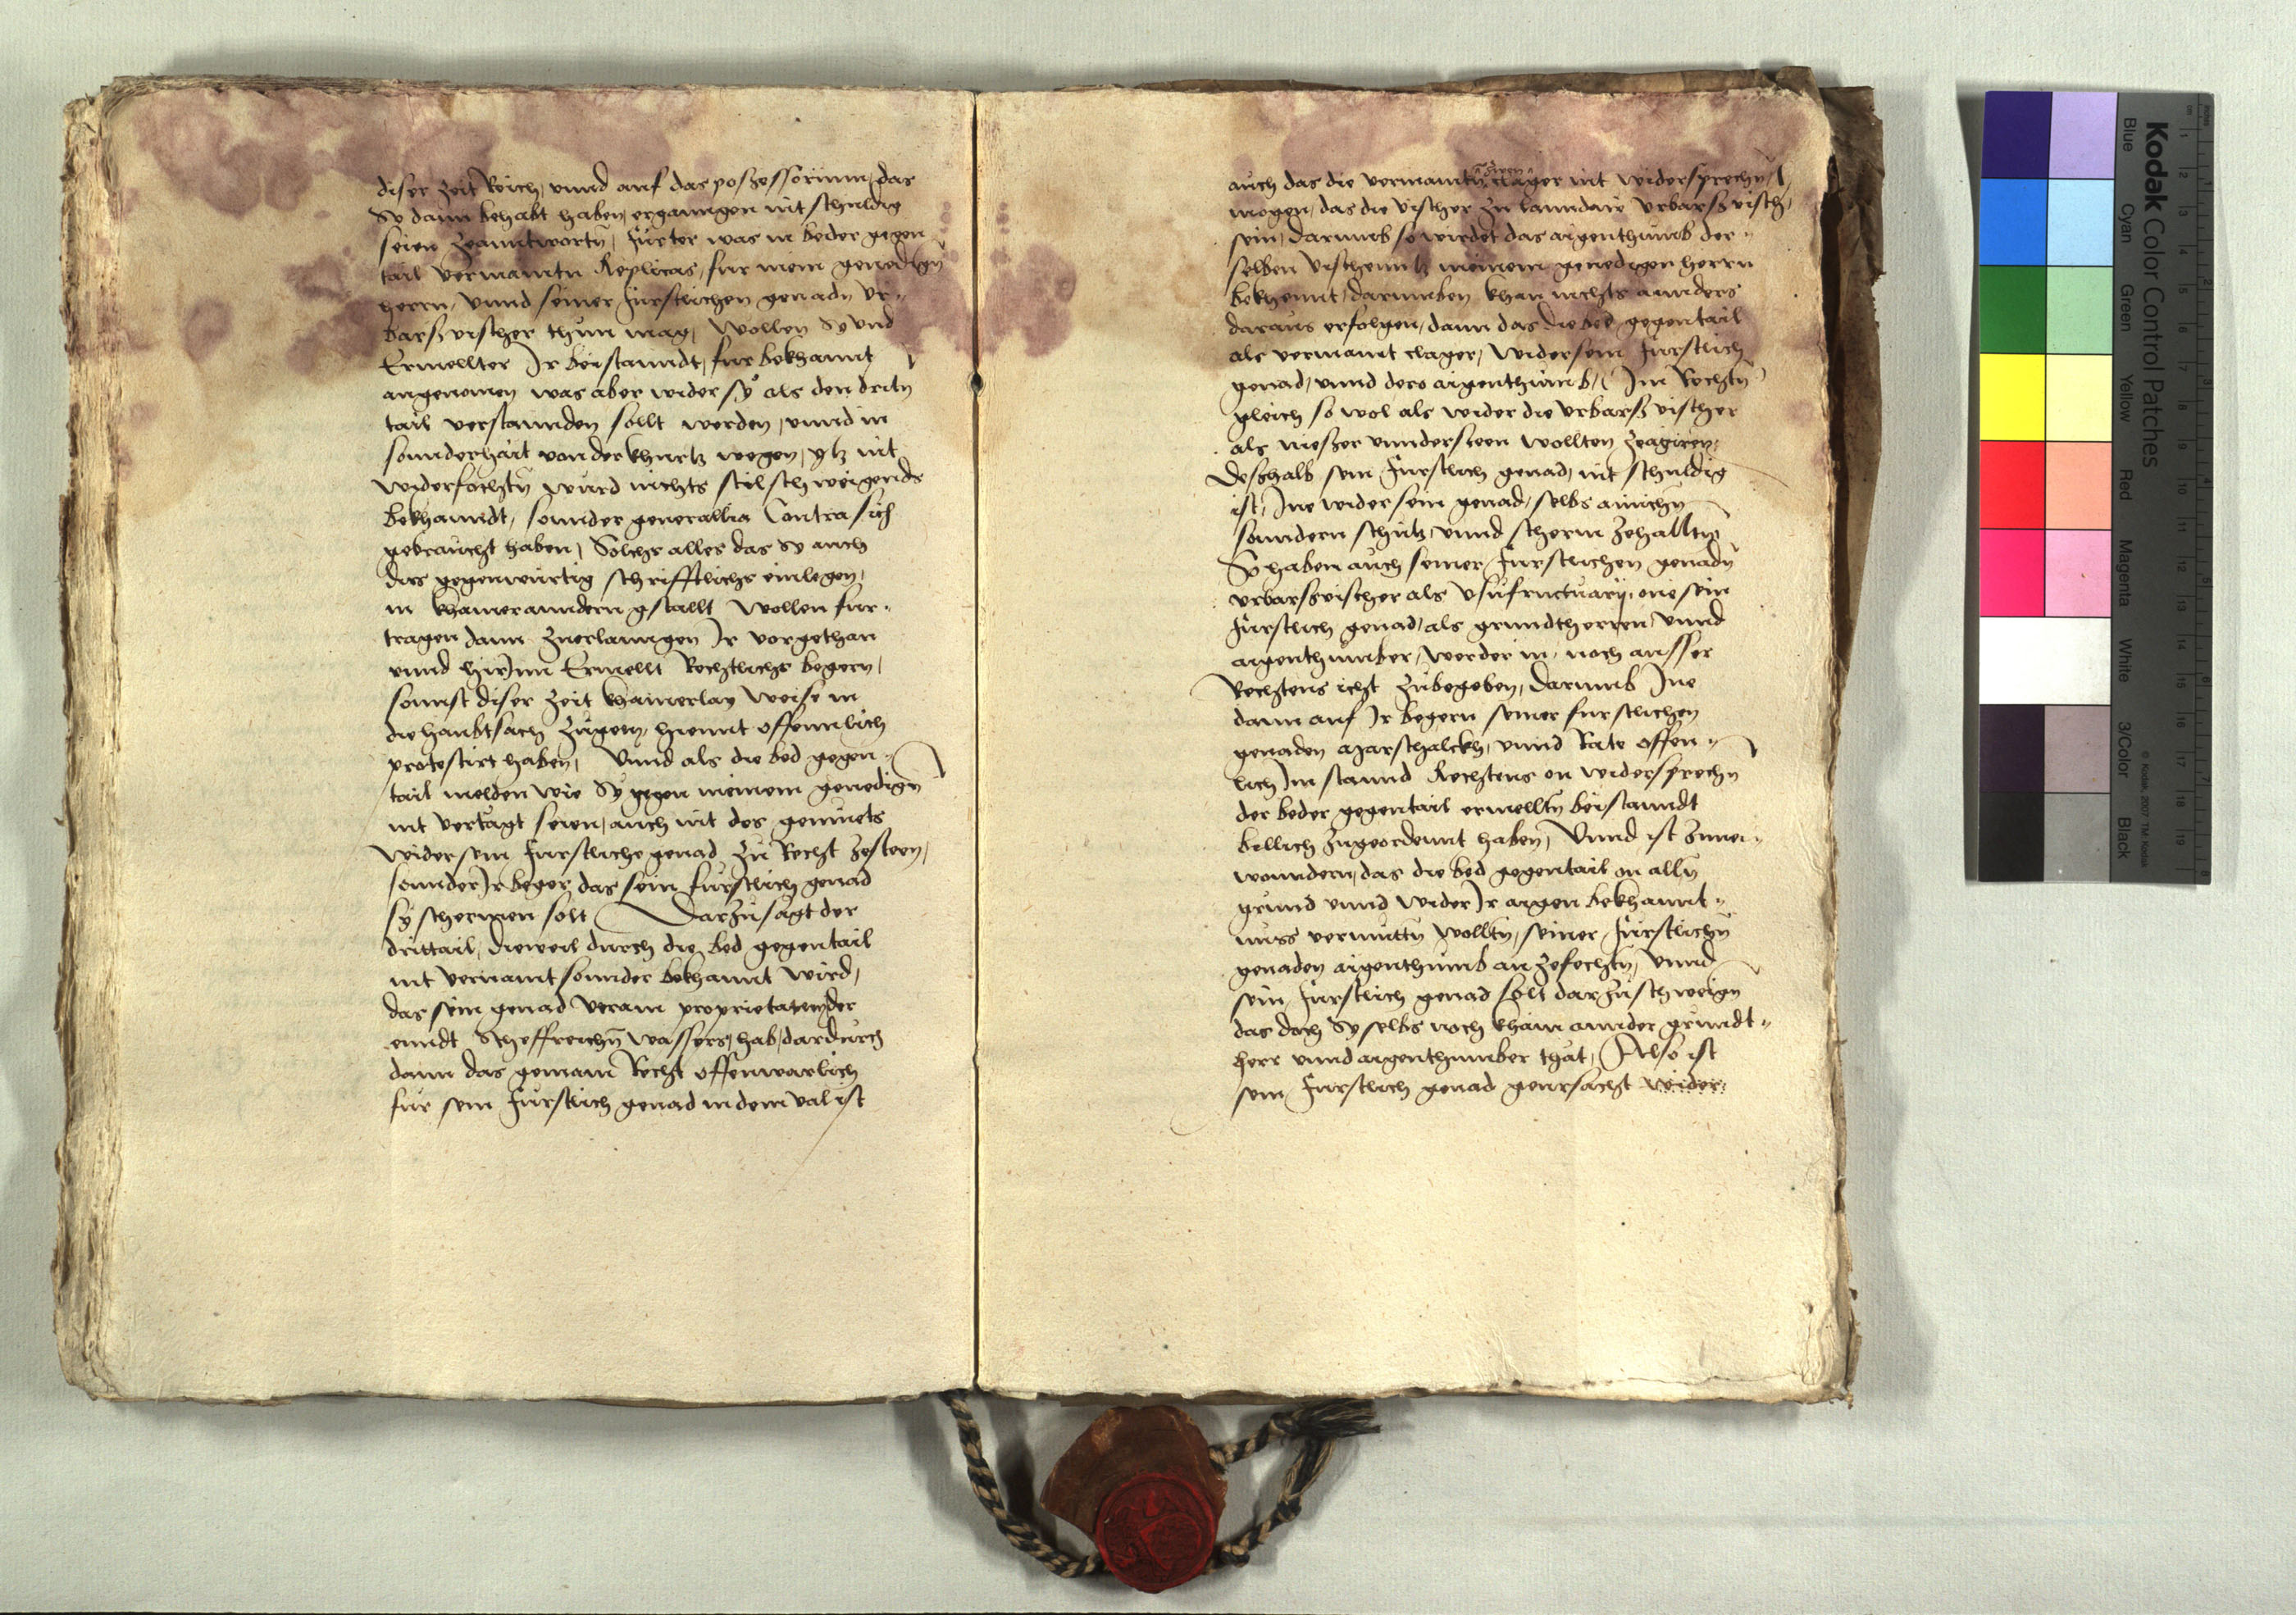 diser zeit Reich, vnnd auf das possessorium, das
Sy dann behabt haben, erganngen nit schuldig
seien zeantwortn, Fürter was in beder gegen
tail vermaintn Replicas, fur mein genedign
herrn, vnnd seiner Furstlichen genadn Vr-
bars vischer thun mag, Wollen Sy vnd
Ermellter Ir beistanndt, fur bekhannt
angenomen was aber wider sy als den dritn
tail verstannden sollt werden, vnnd in
sonnderhait von der khurtz wegen, ytz nit
widerfochtn wurd nichts stilschweigends
bekhanndt, sonnder generallia Contra sich
gebraucht haben, Solchs alles das Sy auch
das gegenwurtig schrifftlichs einlegen,
in khainer anndern gstallt Wollen fur-
tragen dann zuerlanngen Ir vorgethan
vnnd hirJnn Ermellt Rechtlichs begern,
sonnst diser Zeit khainerlay Weise in
die haubtsach zugeen, hiemit offennlich
protestirt haben, Vnnd als die bed gegen-
tail melden wie Sy gegen meinem genedign
nit vertagt seien, auch nit des gemüets
wider sein Furstliche genad zu Recht zesteen,
sonnder Ir beger das sein furstlich genad
sy schermen solt Darzu sagt der
drittail, dieweil durch die bed gegentail
nit vernaint sonnder bekhannt wird,
das sein genad veram proprietatem der
enndt Scheffreichn Wassers, hab, dardurch
dann das gemain Recht offenwarlich
fur sein Furstlich genad in dem val ist
auch das die vermaintn clager nit widersprechn
mogen, das die vischer zu lanndaw Vrbars visch,
sein, darumb so wirdet das aigenthumb der-
selben vischenntz meinem genedigen herrn
bekhennt, darumben khan nichts annders
daraus erfolgen, dann das die bed gegentail
als vermaint clager, wider sein Furstlich
genad, vnnd dero aigenthumb, Im Rechtn
gleich so wol als wider die vrbars vischer
als niesser vnndersteen wollten zeagiren,
Deshalb sein Furstlich genad, nit schuldig
ist, Ine wider sein genad, selbs ainichn
sonndern schutz, vnnd scherm zehalltn
So haben auch seiner Furstlichen genadn
vrbarsvischer als vsufructuarij, one sein
Furstlich genad, als grundtherren, vnnd
aigenthumber, weder in, noch ausser
Rechtens icht zubegeben, darumb Ine
dann auf Ir begern seiner furstlichen
genaden Marschalckh, vnnd Rate offen-
lich Im stannd Rechtens on widersprechn
der beder gegentail ermelltn beistanndt
billich zugeordennt haben, Vnnd ist zuuer-
wundern, das die bed gegentail on alln
grund vnnd wider Ir aigen bekhannt-
nuss vermuttn wolltn, seiner Furstlichn
genaden aigenthumb an zefechtn, vnnd
sein Furstlich genad solt darzu schweign
das doch Sy selbs noch khain annder grundt-
herr vnnd aigenthumber that, Also ist
sein Furstlich genad geursacht wider
Kodak Color Control Patches
Blue Cyan Green Yellow Red Magenta White 3/Color Black
© Kodak, 2007 TM: Kodak